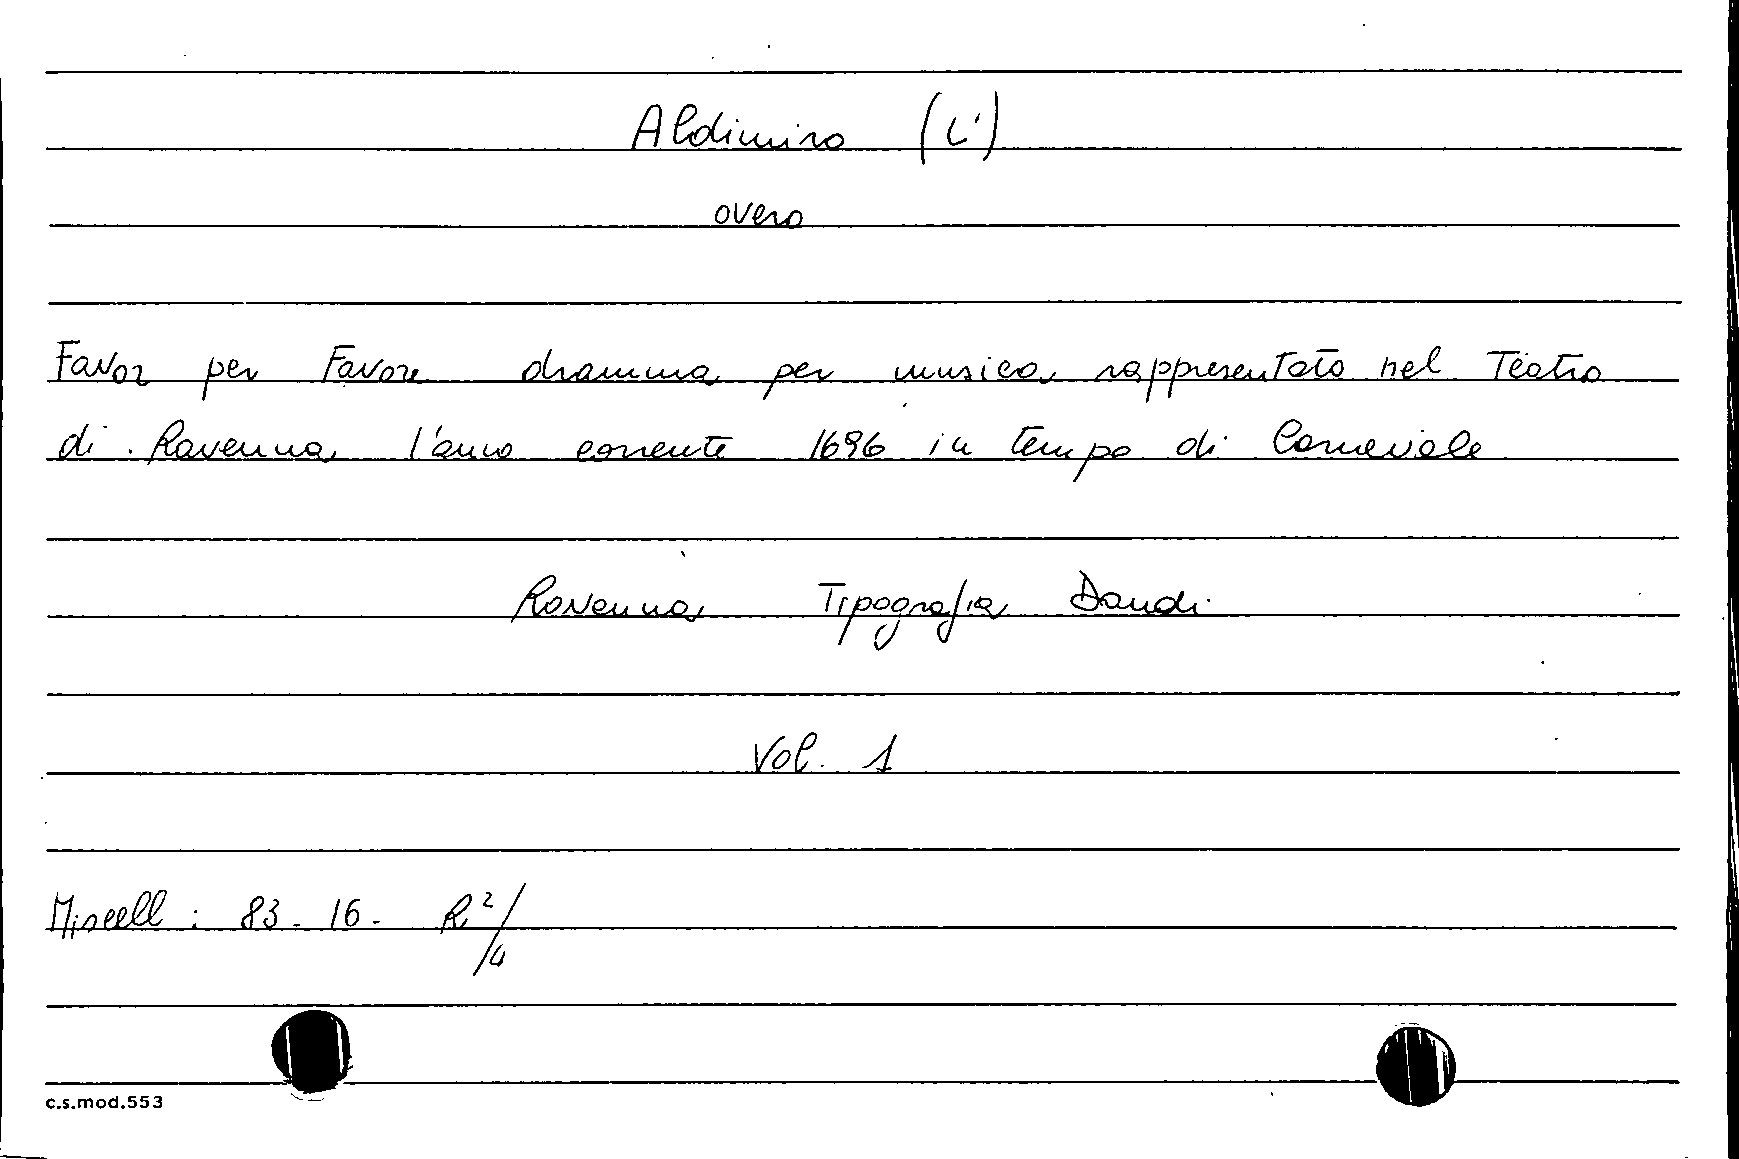 Aldimiro (L')
overo
Favor per Favore dramma per musica rappresentato nel Teatro
di Ravenna l'anno corrente 1696 in tempo di Carnevale
Ravenna Tipografia Dandi
Vol. 1
Miscell: 83-16- R²/4
c.s.mod.553